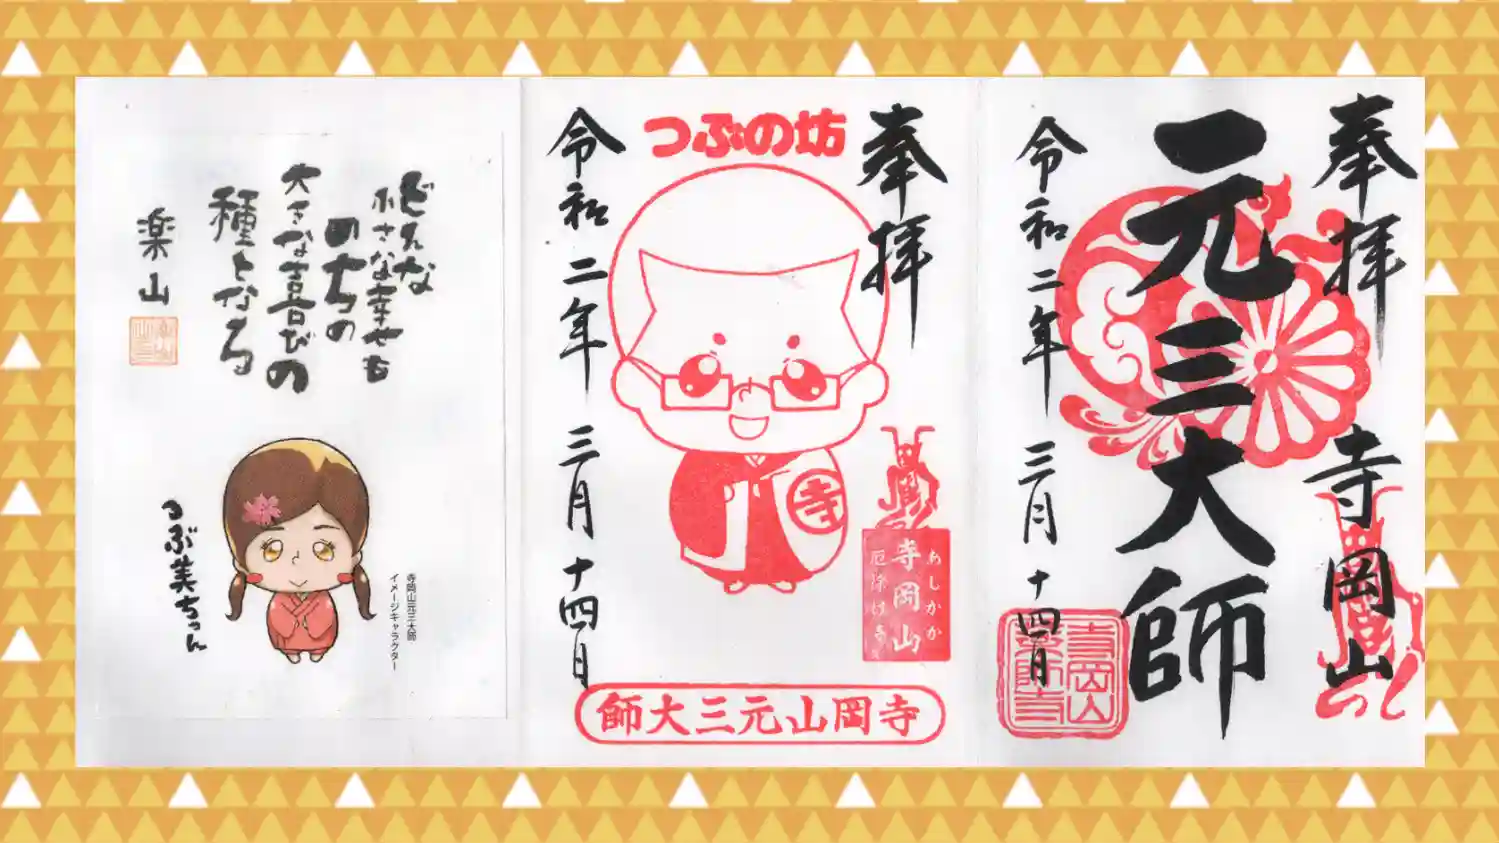 奉拝
寺岡山
元三大師
令和二年
三月
十四日
奉拝
つぶの坊
寺
あしかが
寺岡山
厄除け寺
令和二年
三月
十四日
師大三元山岡寺
どんな
小さな幸せも
のちの
大きな喜びの
種となる
楽山
つぶ美ちゃん
寺岡山元三大師
イメージキャラクター